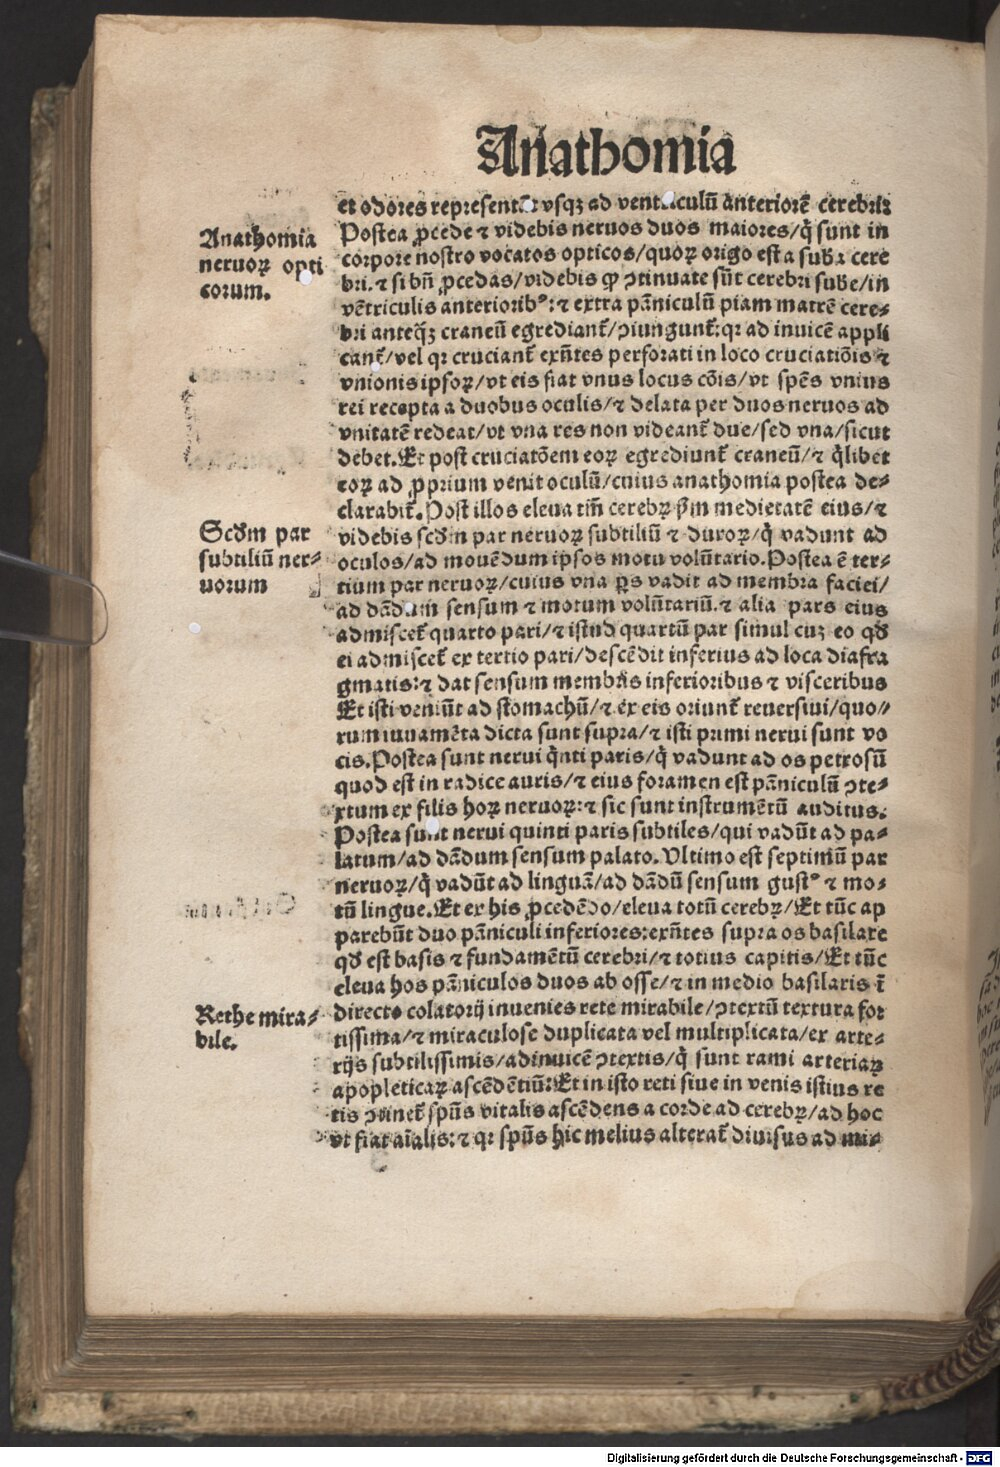 Anathomia
et odores representat vsqꝫ ad ventriculū anteriorē cerebri:
Postea ꝓcede ⁊ videbis neruos duos maiores/q̄ sunt in
corpore nostro vocatos opticos/quoꝝ origo est a suba cere
bri. ⁊ si bn̄ ꝓcedas/videbis ꝙ ꝯtinuate sūt cerebri sube/in
vētriculis anterioribꝰ: ⁊ extra pāniculū piam matrē cere⸗
bri anteq̄ꝫ craneū egrediant̄/ꝯiungunt̄: qꝛ ad inuicē appli
cant̄/vel qꝛ cruciant̄ exn̄tes perforati in loco cruciatiōis ⁊
vnionis ipsoꝝ/vt eis fiat vnus locus cōis/vt spēs vnius
rei recepta a duobus oculis/⁊ delata per duos neruos ad
vnitatē redeat/vt vna res non videant̄ due/sed vna/sicut
debet. Et post cruciatōem eoꝝ egrediunt̄ craneū/⁊ q̄libet
eoꝝ ad ꝓprium venit oculū/cuius anathomia postea de⸗
clarabit̄. Post illos eleua tm̄ cerebꝝ ẜm medietatē eius/⁊
videbis scd̄m par neruoꝝ subtiliū ⁊ duroꝝ/q̄ vadunt ad
oculos/ad mouēdum ipsos motu volūtario. Postea ē ter⸗
tium par neruoꝝ/cuius vna ꝑs vadit ad membra faciei/
ad dādum sensum ⁊ motum volūtariū. ⁊ alia pars eius
admiscet̄ quarto pari/⁊ istud quartū par simul cuꝫ eo qd̄
ei admiscet̄ ex tertio pari/descēdit inferius ad loca diafra
gmatis: ⁊ dat sensum membris inferioribus ⁊ visceribus
Et isti veniūt ad stomachū/⁊ ex eis oriunt̄ reuersiui/quo⸗
rum iuuamēta dicta sunt supra/⁊ isti primi nerui sunt vo
cis. Postea sunt nerui q̄nti paris/q̄ vadunt ad os petrosū
quod est in radice auris/⁊ eius foramen est pāniculū ꝯte⸗
xtum ex filis hoꝝ neruoꝝ: ⁊ sic sunt instrumētū auditus.
Postea sunt nerui quinti paris subtiles/qui vadūt ad pa⸗
latum/ad dādum sensum palato. Ultimo est septimū par
neruoꝝ/q̄ vadūt ad linguā/ad dādū sensum gustꝰ ⁊ mo⸗
tū lingue. Et ex his ꝓcedēdo/eleua totū cerebꝝ/Et tūc ap
parebūt duo pāniculi inferiores: exn̄tes supra os basilare
qd̄ est basis ⁊ fundamētū cerebri/⁊ totius capitis/Et tūc
eleua hos pāniculos duos ab osse/⁊ in medio basilaris ī
directo colatorij inuenies rete mirabile/ꝯtextū textura for
tissima/⁊ miraculose duplicata vel multiplicata/ex arte⸗
rijs subtilissimis/adinuicē ꝯtextis/q̄ sunt rami arteriaꝝ
apopleticaꝝ ascēdētiū: Et in isto reti siue in venis istius re
tis ꝯtinet̄ spūs vitalis ascēdens a corde ad cerebꝝ/ad hoc
vt fiat aīalis: ⁊ qꝛ spūs hic melius alterat̄ diuisus ad mi⸗
Anathomia
neruoꝝ opti
corum.
Scd̄m par
subtiliū ner⸗
uorum
Rethe mira⸗
bile.
Digitalisierung gefördert durch die Deutsche Forschungsgemeinschaft - DFG